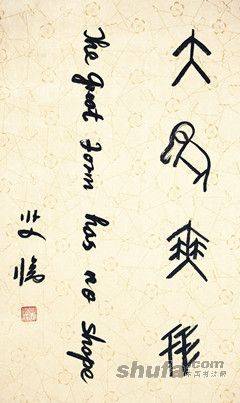 大象無形
The great Form has no shape
shufa.com